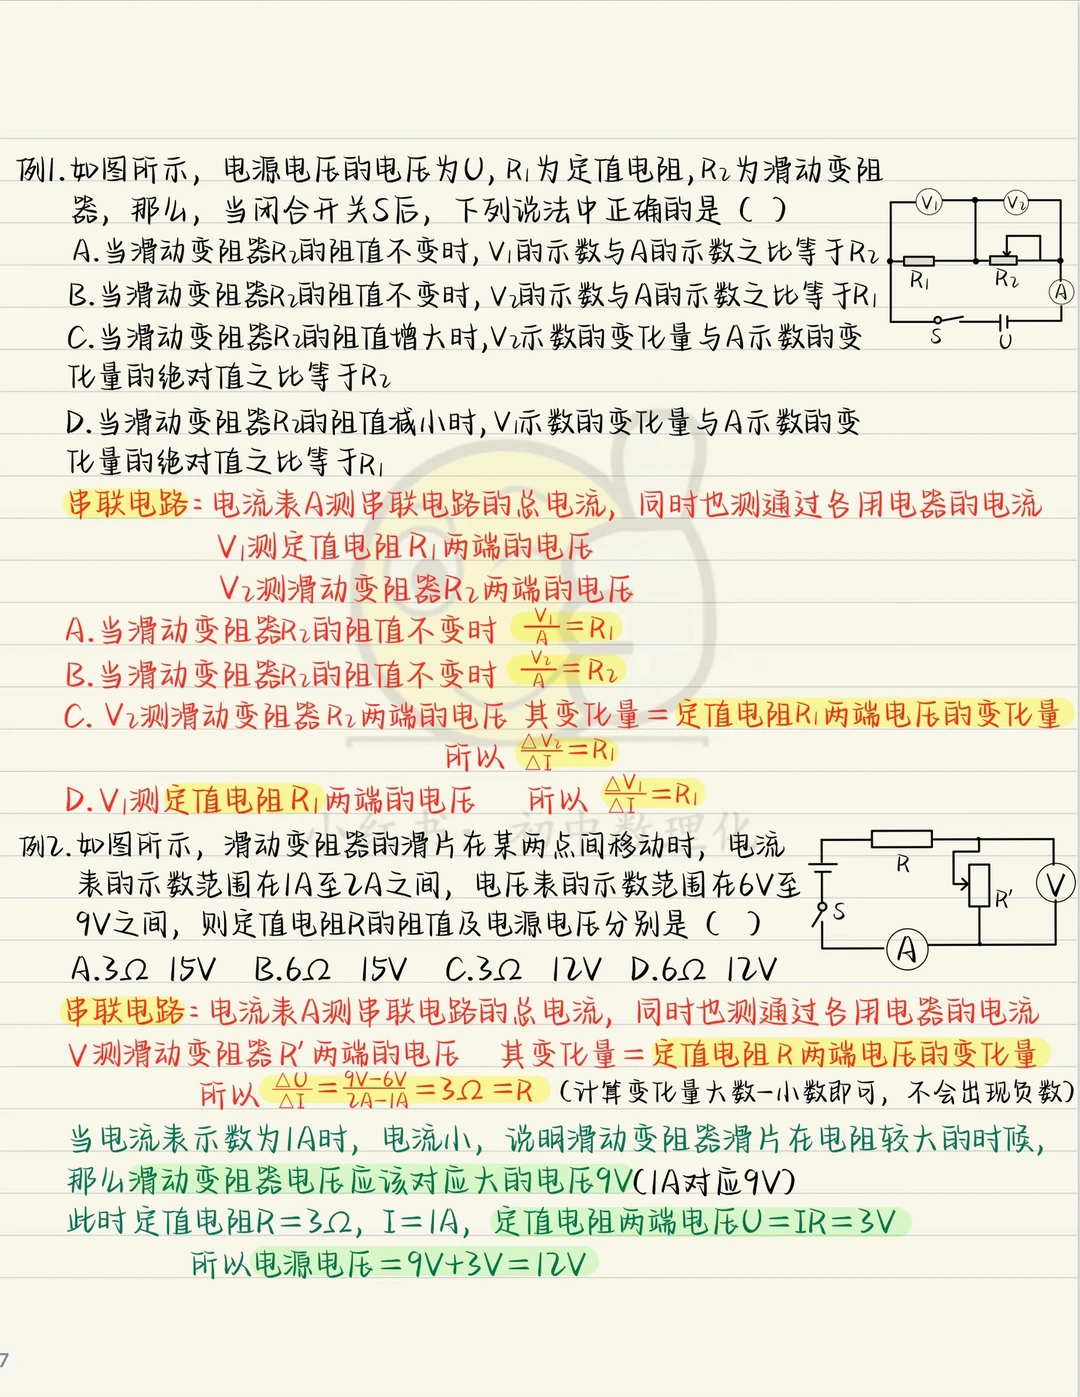 例1.如图所示，电源电压的电压为U，R₁为定值电阻，R₂为滑动变阻
器，那么，当闭合开关S后，下列说法中正确的是（ ）
A.当滑动变阻器R₂的阻值不变时，V₁的示数与A的示数之比等于R₂
B.当滑动变阻器R₂的阻值不变时，V₂的示数与A的示数之比等于R₁
C.当滑动变阻器R₂的阻值增大时，V₂示数的变化量与A示数的变
化量的绝对值之比等于R₂
D.当滑动变阻器R₂的阻值减小时，V₁示数的变化量与A示数的变
化量的绝对值之比等于R₁
V₁ V₂
R₁ R₂
A
S U
串联电路：电流表A测串联电路的总电流，同时也测通过各用电器的电流
V₁测定值电阻R₁两端的电压
V₂测滑动变阻器R₂两端的电压
A.当滑动变阻器R₂的阻值不变时 V₁/A=R₁
B.当滑动变阻器R₂的阻值不变时 V₂/A=R₂
C. V₂测滑动变阻器R₂两端的电压 其变化量=定值电阻R₁两端电压的变化量
所以 △V₂/△I=R₁
D.V₁测定值电阻R₁两端的电压 所以 △V₁/△I=R₁
小红书：初中数理化
例2.如图所示，滑动变阻器的滑片在某两点间移动时，电流
表的示数范围在1A至2A之间，电压表的示数范围在6V至
9V之间，则定值电阻R的阻值及电源电压分别是（ ）
A.3Ω 15V B.6Ω 15V C.3Ω 12V D.6Ω 12V
R
R′ V
S
A
串联电路：电流表A测串联电路的总电流，同时也测通过各用电器的电流
V测滑动变阻器R′两端的电压 其变化量=定值电阻R两端电压的变化量
所以 △U/△I=9V-6V/2A-1A=3Ω=R（计算变化量大数-小数即可，不会出现负数）
当电流表示数为1A时，电流小，说明滑动变阻器滑片在电阻较大的时候，
那么滑动变阻器电压应该对应大的电压9V（1A对应9V）
此时定值电阻R=3Ω，I=1A，定值电阻两端电压U=IR=3V
所以电源电压=9V+3V=12V
7